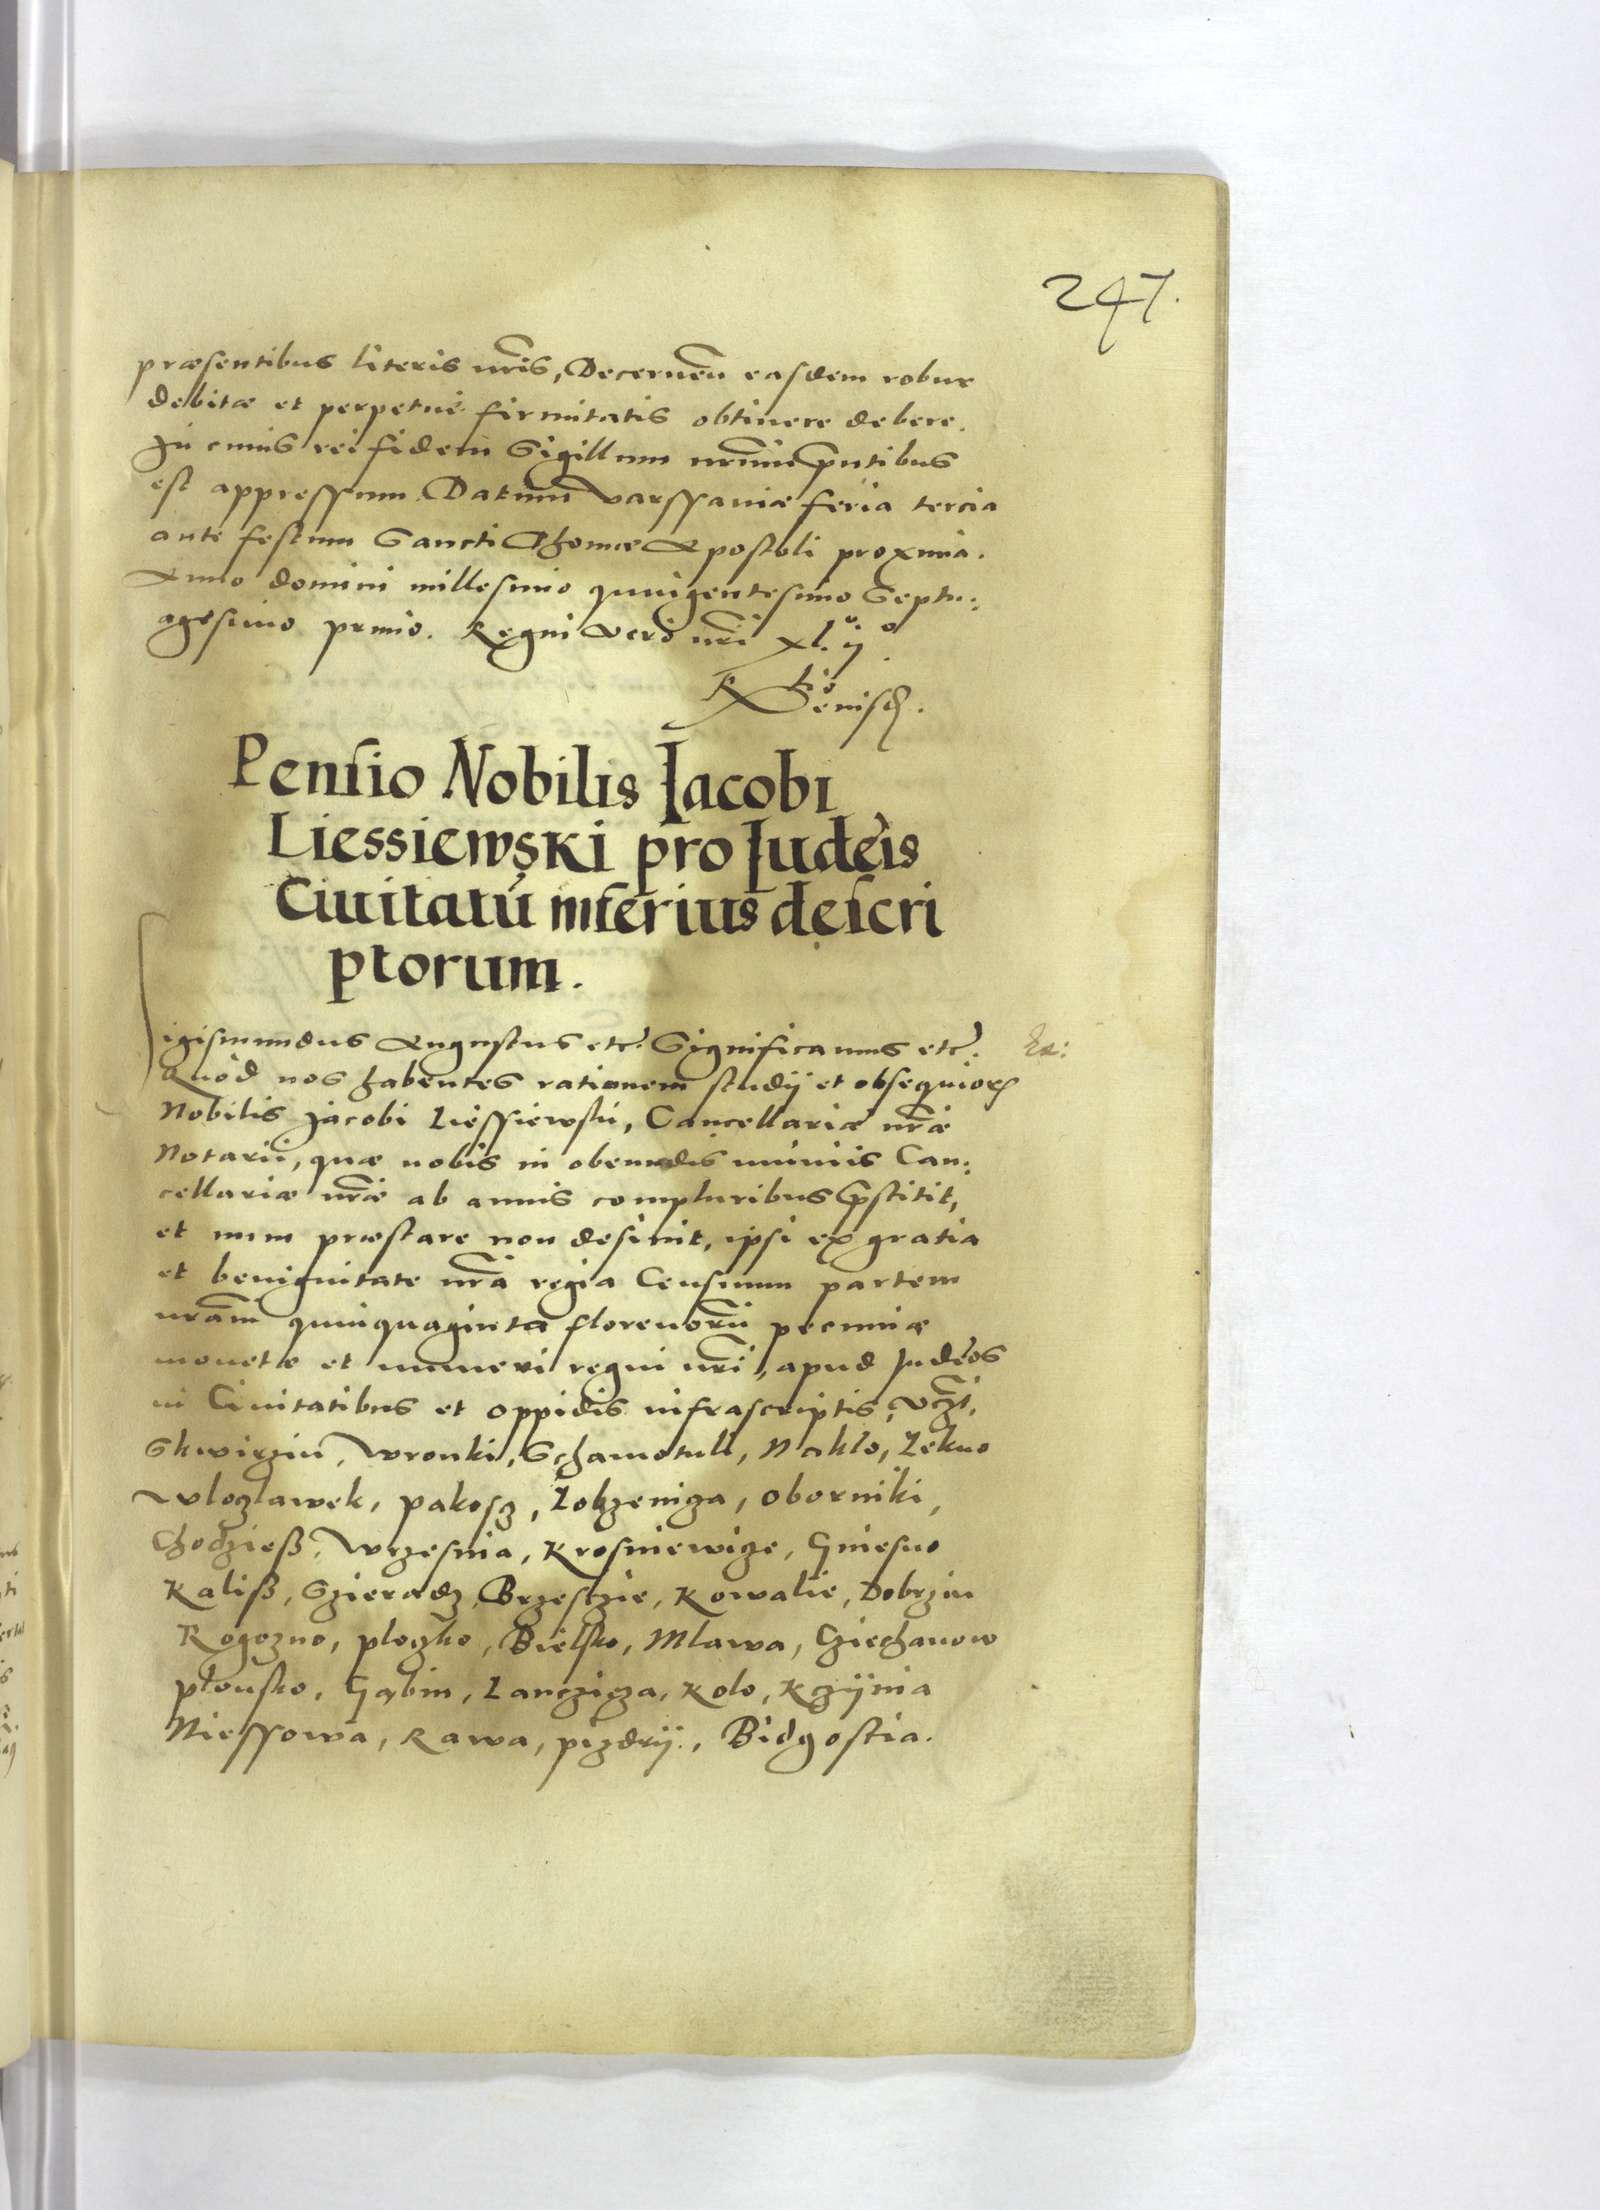 247.
præsentibus literis nr̃is, Decernen̄ easdem robur
debitæ et perpetuè firmitatis obtinere debere.
In cuius rei fidem Sigillum nrũm pñtibus
est appressum. Datum Varssaviæ feria tercia
ante festum Sancti Thomæ Apostoli proxima.
Anno domini millesimo quingentesimo Septu:
agesimo primo. Regni vero nr̃i xl.ij°.
Pensio Nobilis Jacobi
Liessiewski pro Judeis
Ciuitatū inferius descri
ptorum.
Sigismundus Augustus etc̃. Significamus etc̃.
Quòd nos habentes rationem studij et obsequiorꝝ
Nobilis Jacobi Liessiewski, Cancellariæ nr̃æ
Notarij, quæ nobis in obeundis munijs Can:
cellariæ nr̃æ ab annis compluribus p̃stitit,
et num præstare non desinit, ipsi ex gratia
et benignitate nr̃a regia Censuum partem
nrãm quinquaginta florenorũ pecuniæ
monetæ et numeri regni nr̃i, apud Judeos
in Ciuitatibus et oppidis infrascriptis, vcz̃t,
Skwirzin, Wronki, Schamotuli, Naklo, Lekno
Wlozlawek, Pakosz, Lobzeniza, Oborniki,
Chodzieß, Wrzesnia, Krosniewize, Gniesno
Kaliß, Szieradz, Brzesczie, Kowalie, Dobrzin
Rogozno, Ploczko, Bielsko, Mlawa, Cziechanow
Plonsko, Gąbin, Lancziza, Kolo, Kczijnia
Niessowa, Rawa, Pizdrij, Bidgostia.